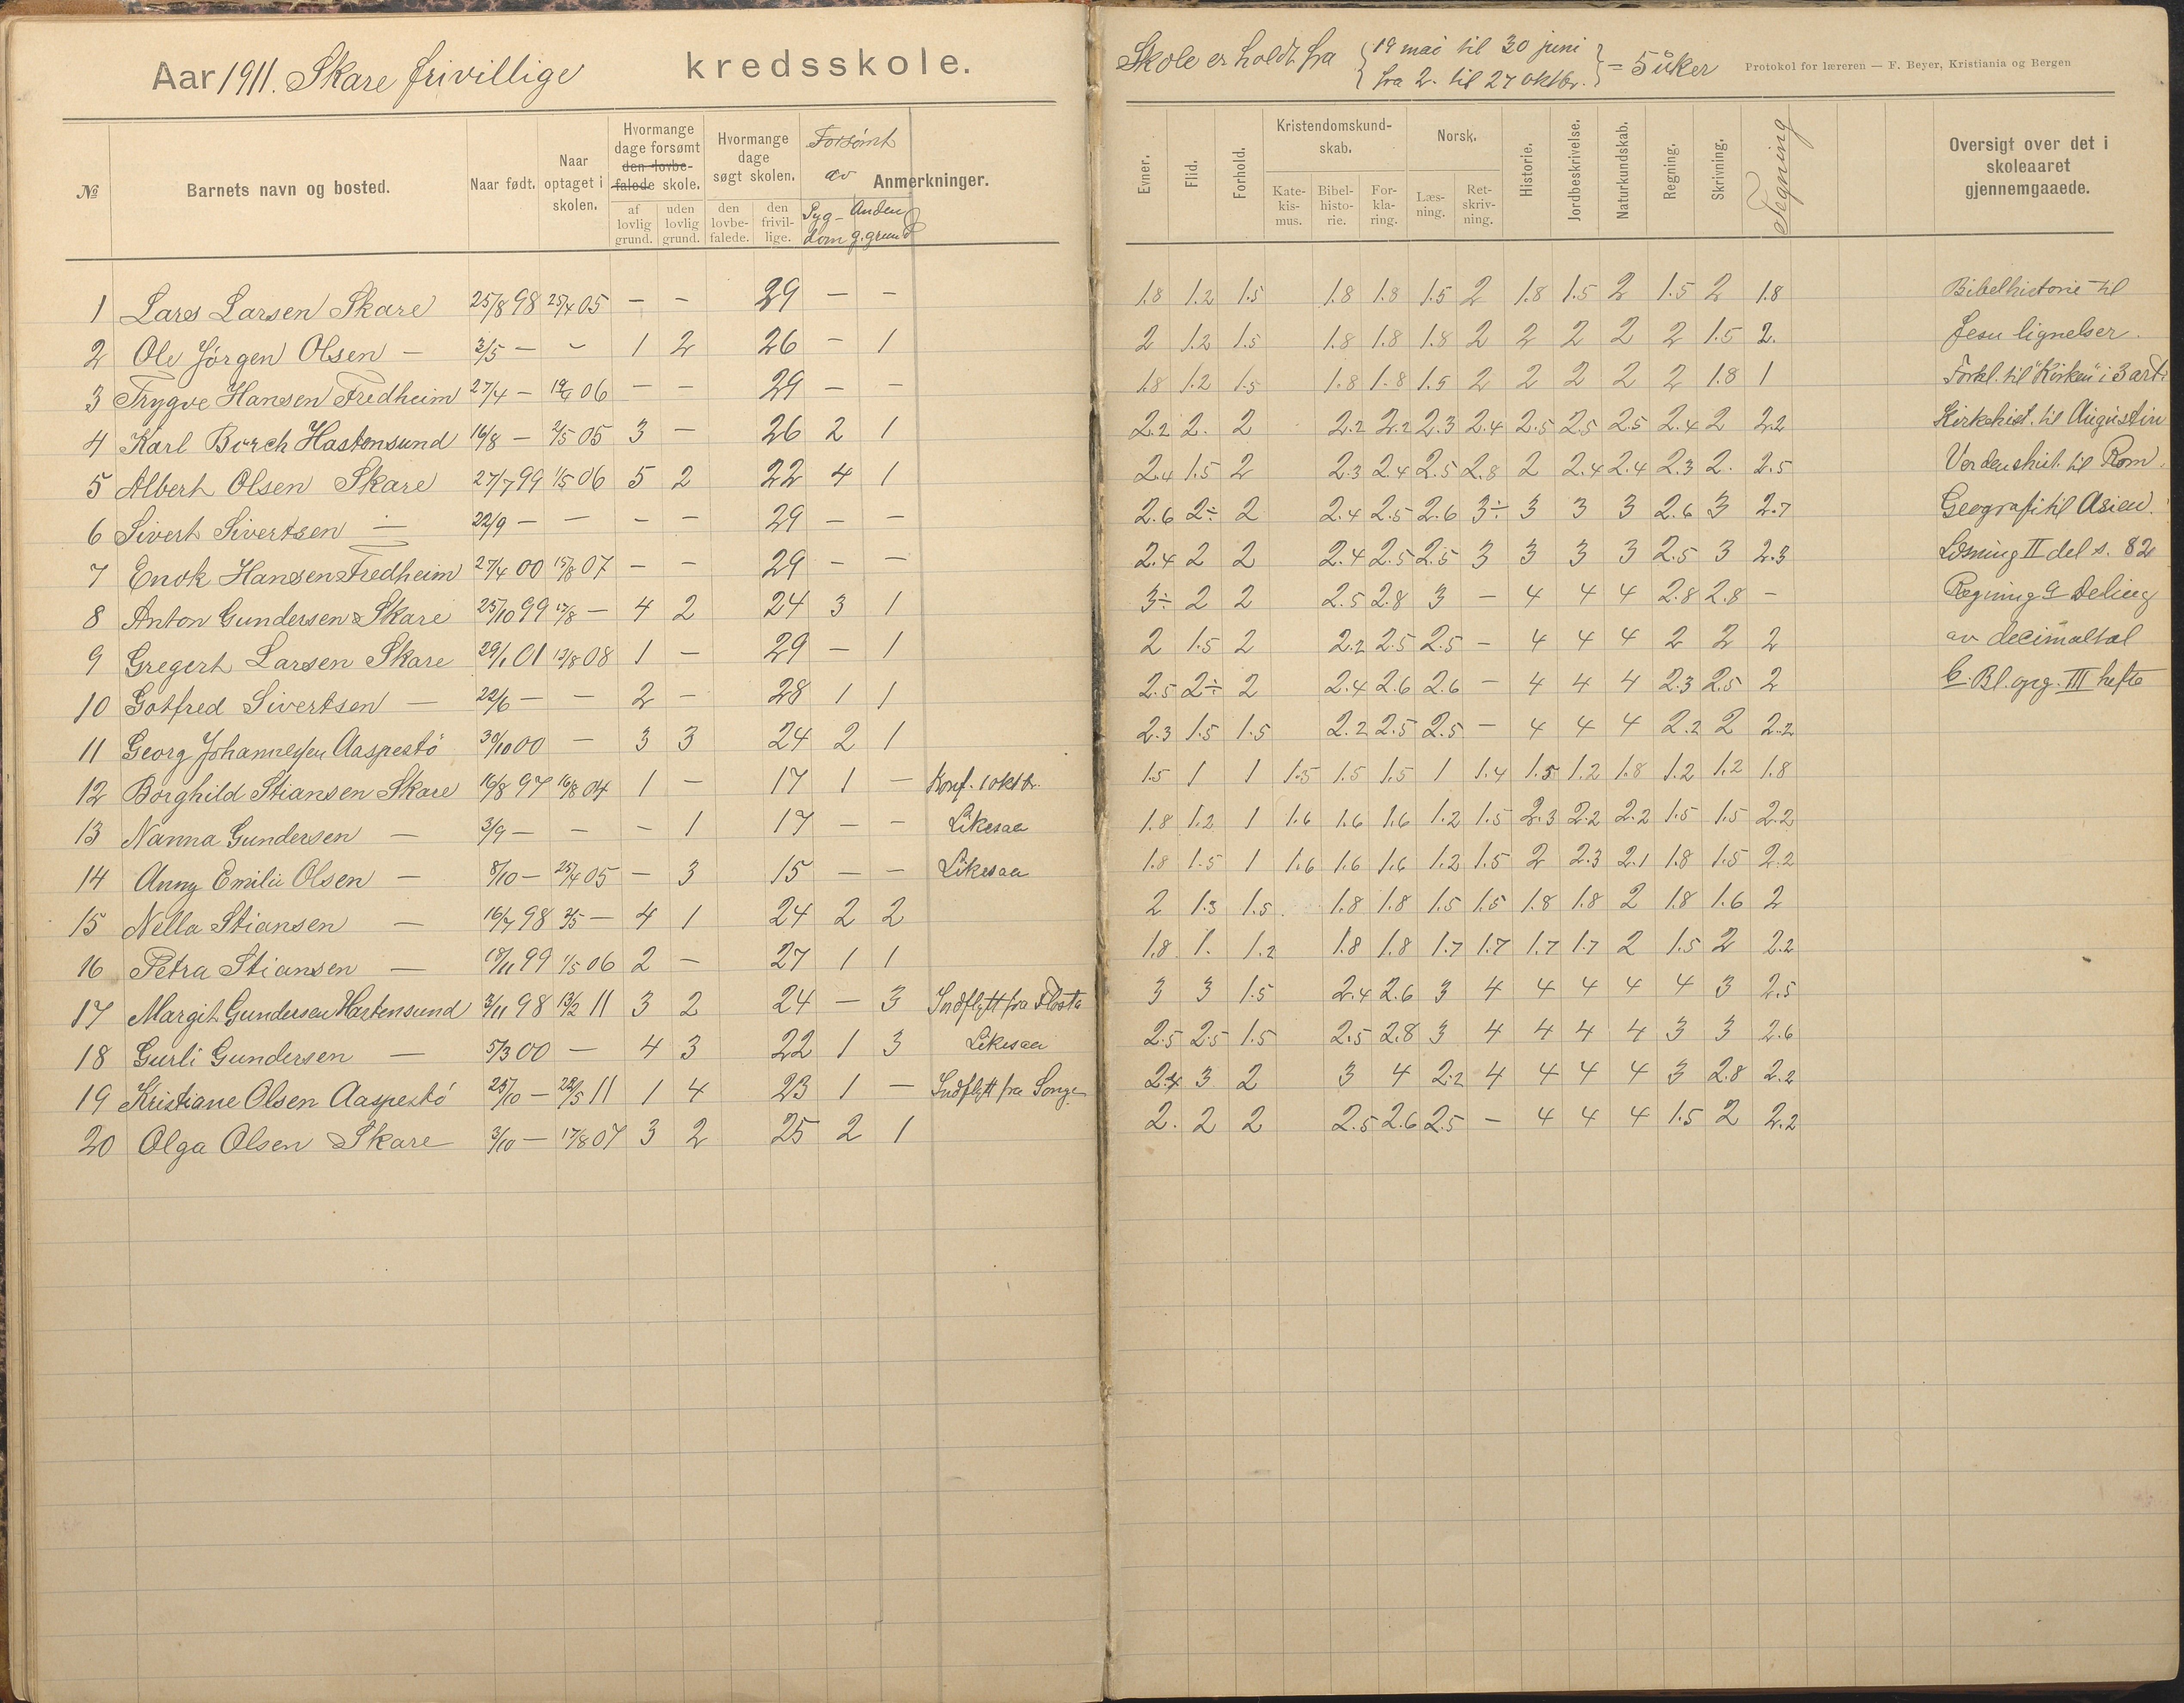 Aar 1911. Skare frivillige kredsskole.
№ Barnets navn og bosted. Naar født. Naar optaget i skolen. Hvormange dage forsømt den lovbefalede skole. af lovlig grund. uden lovlig grund. Hvormange dage søgt skolen. den lovbefalede. den frivillige. Forsømt av Sygdom Anden g. grund Anmerkninger.
1 Lars Larsen Skare 25/8 98 25/4 05 – – 29 – –
2 Ole Jørgen Olsen – 3/5 – – 1 2 26 – 1
3 Trygve Hansen Fredheim 27/4 – 06 – – 29 – –
4 Karl Birch Hastensund 16/8 – 2/5 05 3 – 26 2 1
5 Albert Olsen Skare 27/7 99 1/5 06 5 2 22 4 1
6 Sivert Sivertsen – 22/9 – – – – 29 – –
7 Enok Hansen Fredheim 27/4 00 07 – – 29 – –
8 Anton Gundersen Skare 25/10 99 17/8 – 4 2 24 3 1
9 Gregert Larsen Skare 29/1 01 08 1 – 29 – 1
10 Gotfred Sivertsen – 22/6 – – 2 – 28 1 1
11 Georg Johannessen Aaspestö 30/10 00 – 3 3 24 2 1
12 Borghild Stiansen Skare 16/8 97 16/8 04 1 – 17 1 – Konf. 1 oktbr.
13 Nanna Gundersen – 3/9 – – – 1 17 – – Likesaa
14 Anny Emilie Olsen – 8/10 – 25/4 05 – 3 15 – – Likesaa
15 Nella Stiansen – 16/7 98 2/5 – 4 1 24 2 2
16 Petra Stiansen – 18/11 99 1/5 06 2 – 27 1 1
17 Margit Gundersen Hastensund 3/11 98 13/2 11 3 2 24 – 3 Indflytt fra Flosta
18 Gurli Gundersen – 5/3 00 – 4 3 22 1 3 Likesaa
19 Kristiane Olsen Aaspestö 25/10 – 22/5 11 1 4 23 1 – Indflytt fra Songe
20 Olga Olsen Skare 3/10 – 17/8 07 3 2 25 2 1
Skole er holdt fra { 19 mai til 30 juni
fra 2. til 27 oktbr. } = 5 uker Protokol for læreren — F. Beyer, Kristiania og Bergen
Evner. Flid. Forhold. Kristendomskundskab. Katekismus. Bibelhistorie. Forklaring. Norsk. Læsning. Retskrivning. Historie. Jordbeskrivelse. Naturkundskab. Regning. Skrivning. Tegning Oversigt over det i skoleaaret gjennemgaaede.
1.8 1.2 1.5 1.8 1.8 1.5 2 1.8 1.5 2 1.5 2 1.8 Bibelhistorie til
2 1.2 1.5 1.8 1.8 1.8 2 2 2 2 2 1.5 2. Jesu lignelser.
1.8 1.2 1.5 1.8 1.8 1.5 2 2 2 2 2 1.8 1 Forkl. til "Kirken" i 3 art.
2.2 2. 2 2.2 2.2 2.3 2.4 2.5 2.5 2.5 2.4 2 2.2 Kirkehist. til Augustin
2.4 1.5 2 2.3 2.4 2.5 2.8 2 2.4 2.4 2.3 2. 2.5 Verdenshist. til Rom.
2.6 2÷ 2 2.4 2.5 2.6 3÷ 3 3 3 2.6 3 2.7 Geografi til Asien.
2.4 2 2 2.4 2.5 2.5 3 3 3 3 2.5 3 2.3 Læsning II del s. 82
3÷ 2 2 2.5 2.8 3 – 4 4 4 2.8 2.8 – Regning Deling
2 1.5 2 2.2 2.5 2.5 – 4 4 4 2 2 2 av decimaltal
2.5 2÷ 2 2.4 2.6 2.6 – 4 4 4 2.3 2.5 2 III hefte
2.3 1.5 1.5 2.2 2.5 2.5 – 4 4 4 2.2 2 2.2
1.5 1 1 1.5 1.5 1.5 1 1.4 1.5 1.2 1.8 1.2 1.2 1.8
1.8 1.2 1 1.6 1.6 1.6 1.2 1.5 2.3 2.2 2.2 1.5 1.5 2.2
1.8 1.5 1 1.6 1.6 1.6 1.2 1.5 2 2.3 2.1 1.8 1.5 2.2
2 1.3 1.5. 1.8 1.8 1.5 1.5 1.8 1.8 2 1.8 1.6 2
1.8 1. 1.2 1.8 1.8 1.7 1.7 1.7 1.7 2 1.5 2 2.2
3 3 1.5 2.4 2.6 3 4 4 4 4 4 3 2.5
2.5 2.5 1.5 2.5 2.8 3 4 4 4 4 3 3 2.6
2.4 3 2 3 4 2.2 4 4 4 4 3 2.8 2.2
2. 2 2 2.5 2.6 2.5 – 4 4 4 1.5 2 2.2